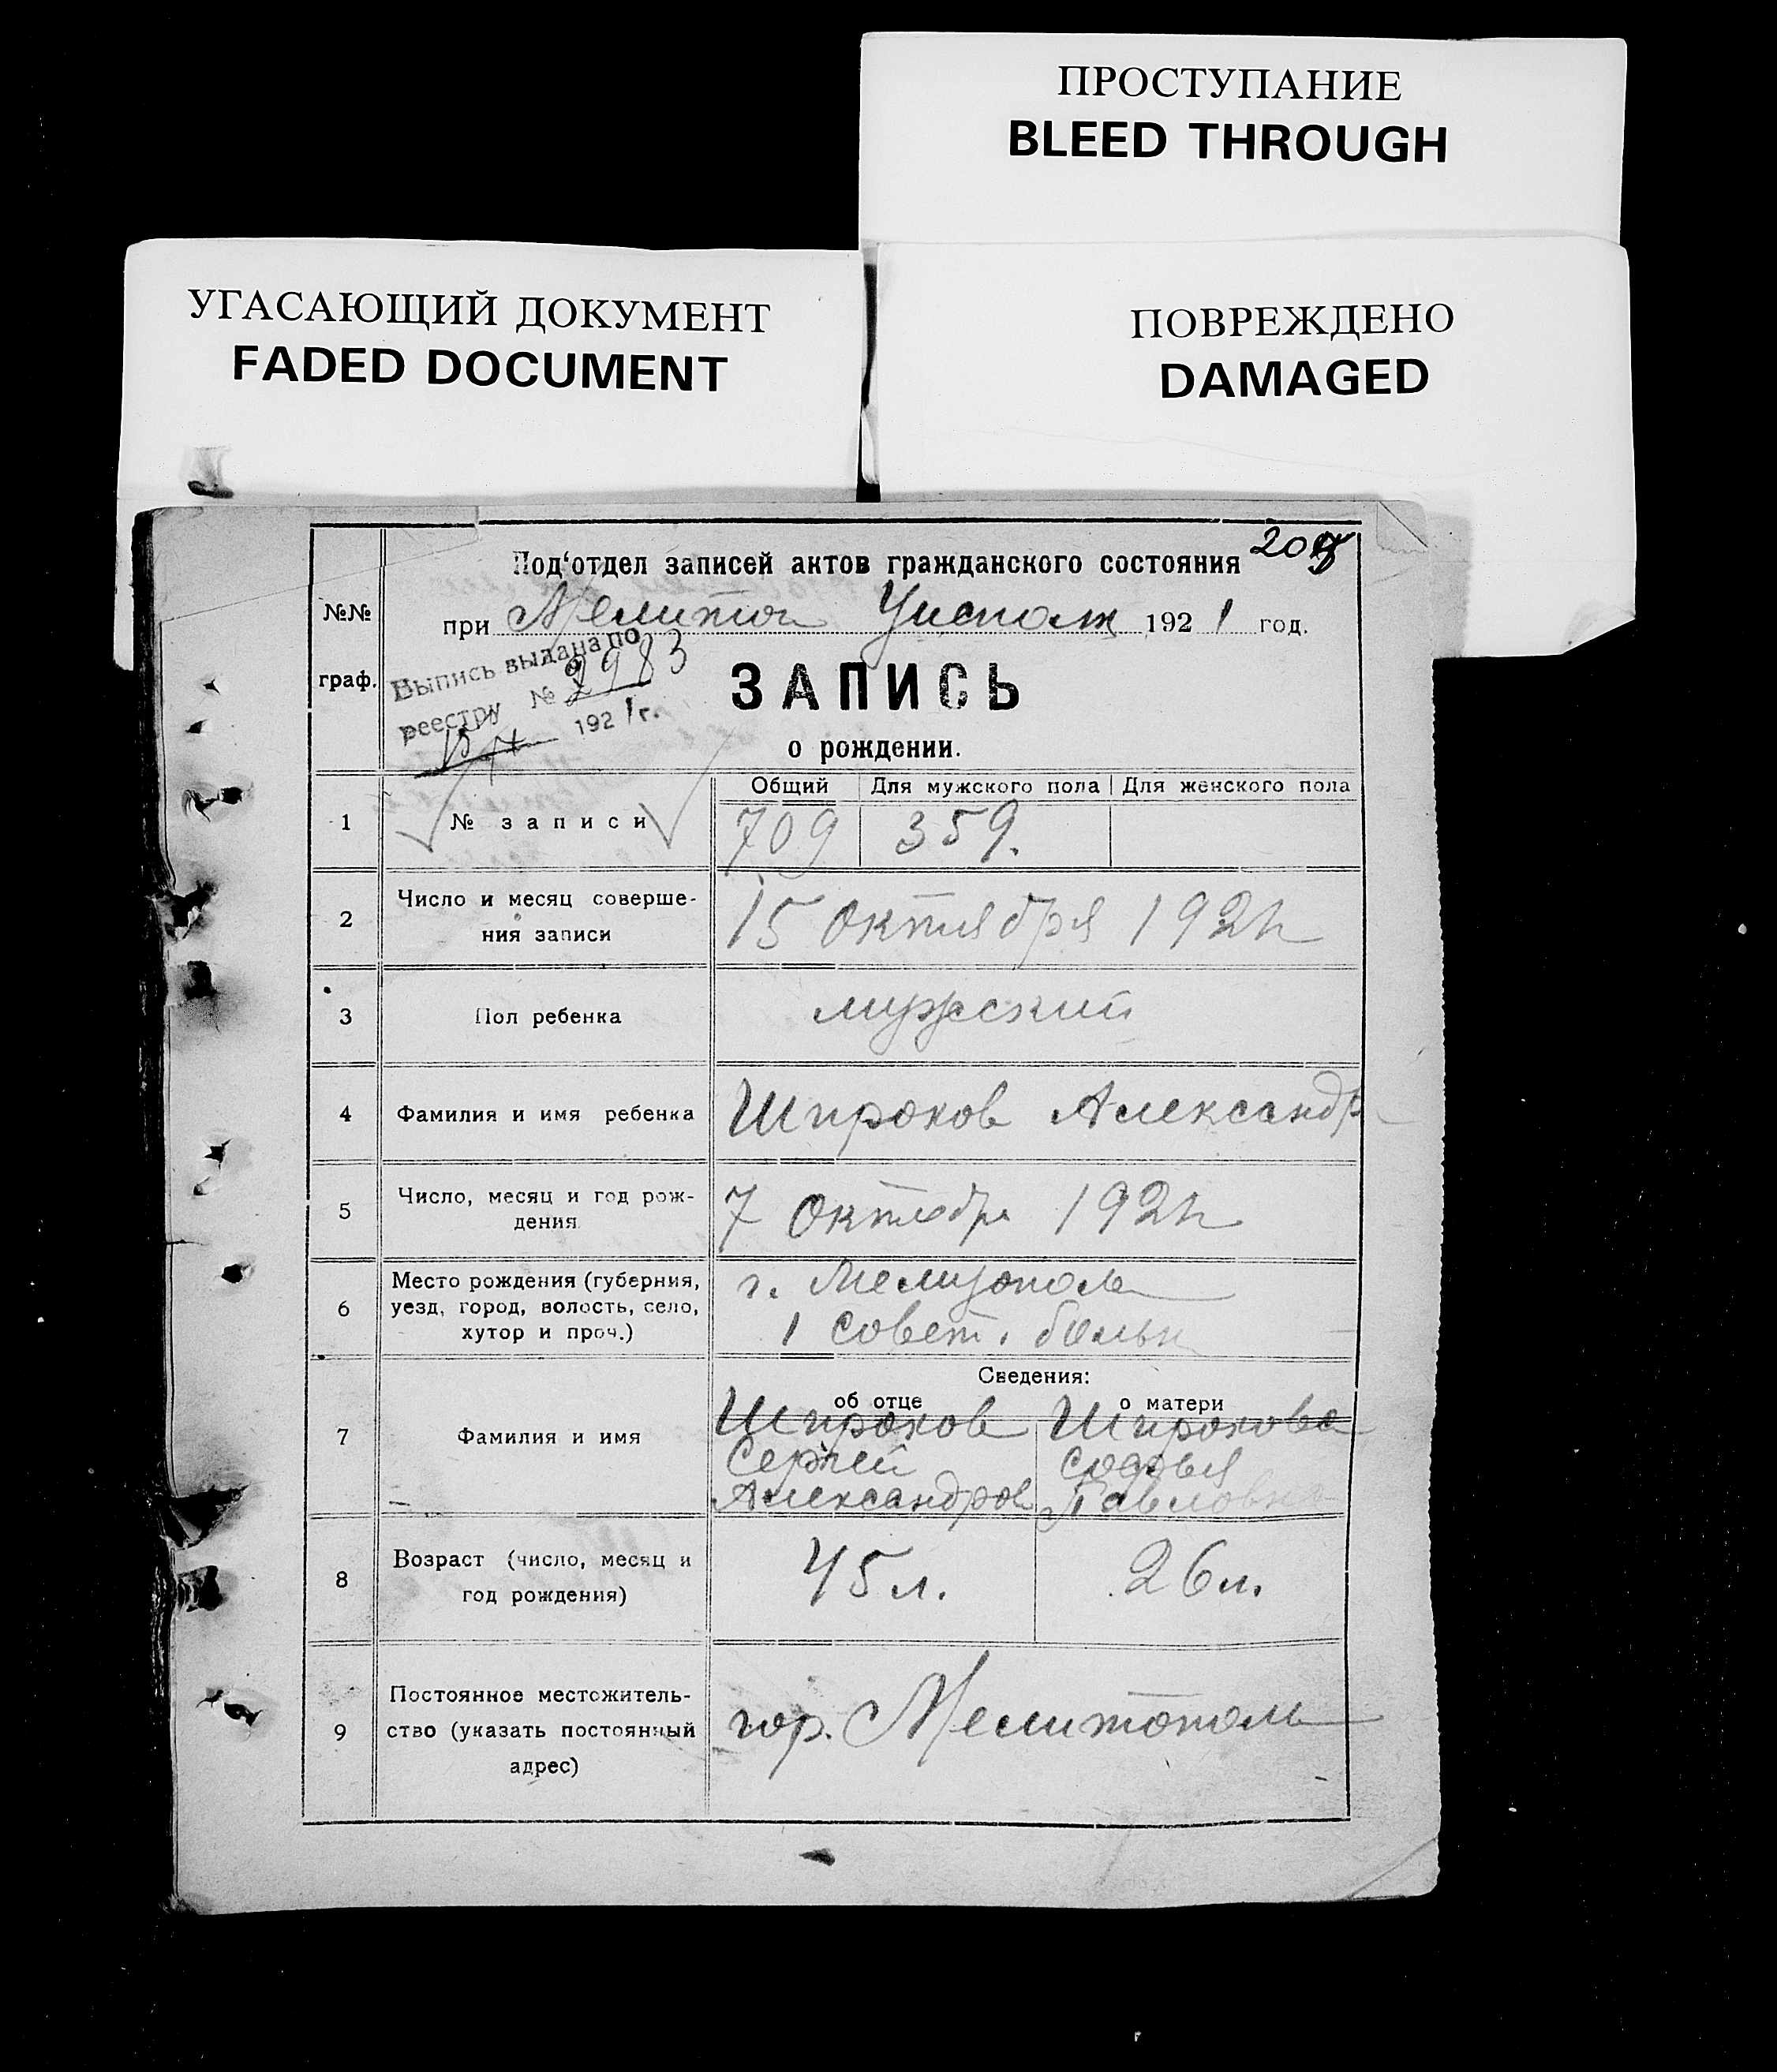 ПРОСТУПАНИЕ
BLEED THROUGH
УГАСАЮЩИЙ ДОКУМЕНТ
FADED DOCUMENT
ПОВРЕЖДЕНО
DAMAGED
Под‘отдел записей актов гражданского состояния
№№
граф.
при Мелитоп Уисполк 1921 год.
Выпись выдана по
реестру № 2983
1921 г.
ЗАПИСЬ
о рождении.
Общий Для мужского пола Для женского пола
1 № записи 709 359.
2 Число и месяц соверше-
ния записи 15 октября 1921
3 Пол ребенка мужский
4 Фамилия и имя ребенка Широков Александр
5 Число, месяц и год рож-
дения 7 октября 1921
6 Место рождения (губерния,
уезд, город, волость, село,
хутор и проч.)
г. Мелитополь
1 совет. больн
Сведения:
об отце о матери
7 Фамилия и имя
Широков Широкова
Сергей Софья
Александров Павловна
8 Возраст (число, месяц и
год рождения) 45 л. 26 л.
9 Постоянное местожитель-
ство (указать постоянный
адрес)
гор. Мелитополь